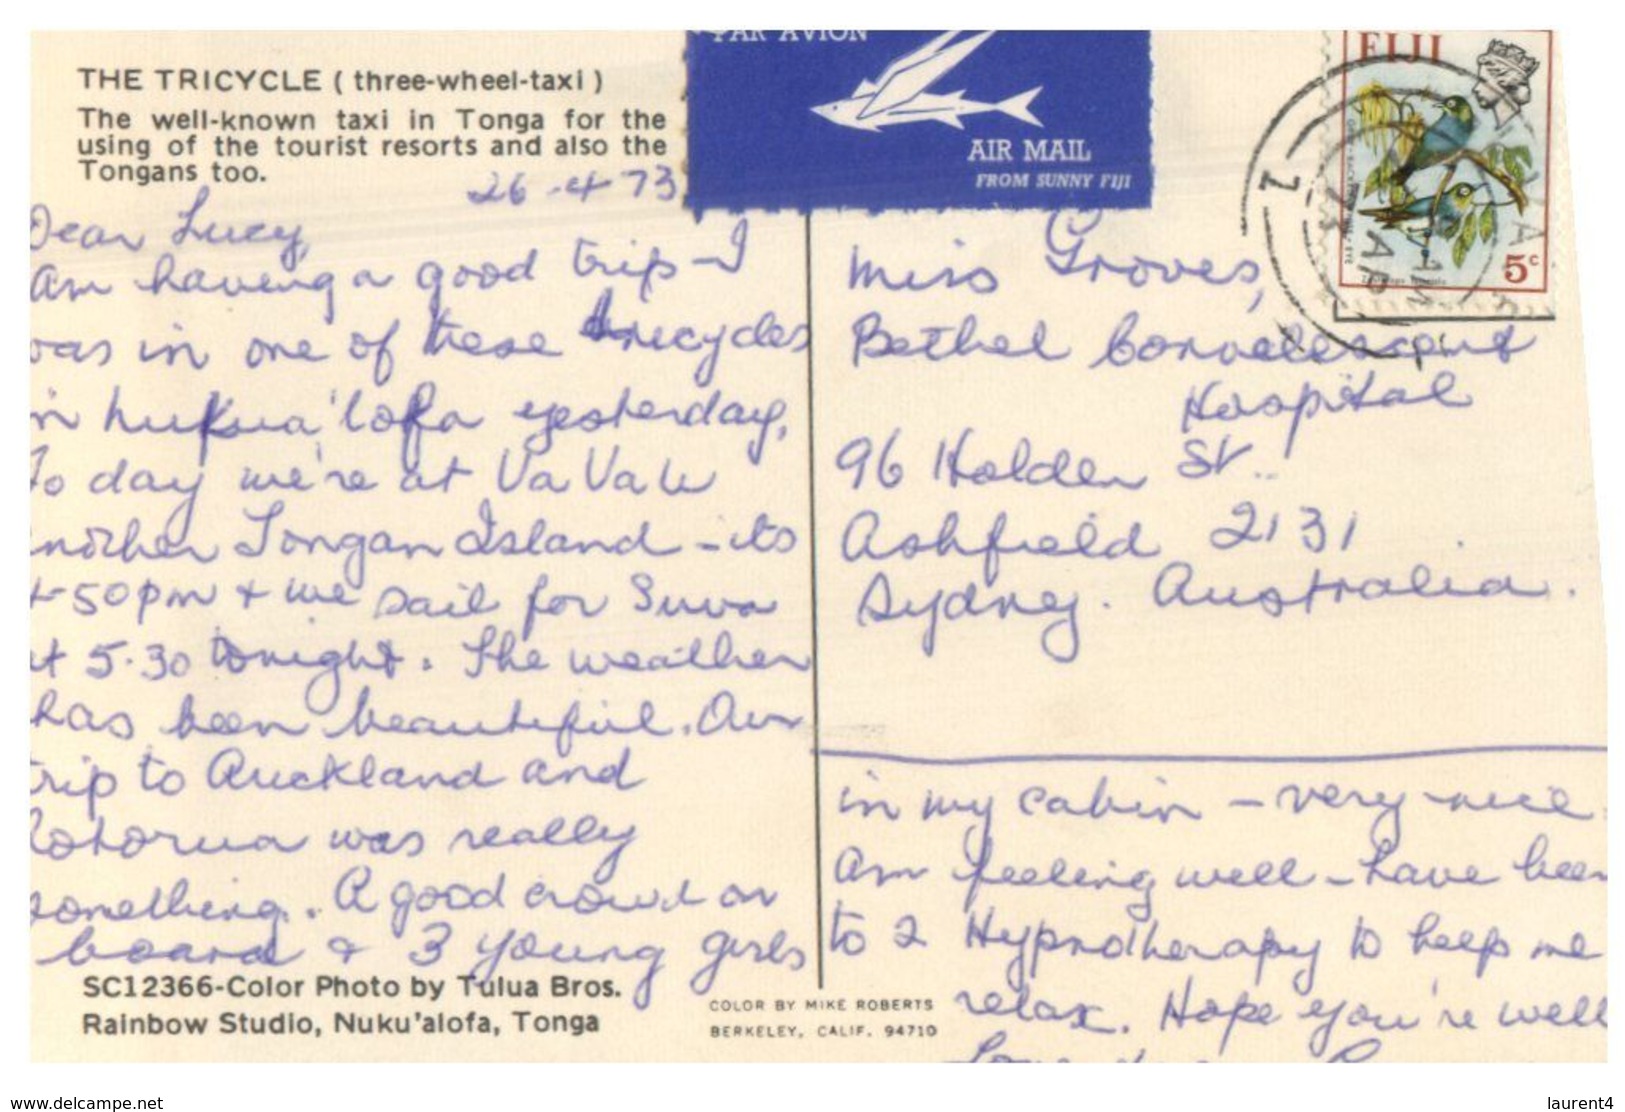 THE TRICYCLE ( three-wheel-taxi )
The well-known taxi in Tonga for the
using of the tourist resorts and also the
Tongans too.
26-4-73
Dear Lucy,
Am having a good trip - I
was in one of these tricycles
in Nukua'lofa yesterday,
To day we're at Va Va u
nother Tongan Island - its
4-50pm + we sail for Suva
at 5.30 tonight. The weather
has been beautiful. Our
trip to Auckland and
Rotorua was really
something. A good crowd on
board & 3 young girls
SC12366-Color Photo by Tulua Bros.
Rainbow Studio, Nuku'alofa, Tonga
COLOR BY MIKE ROBERTS
BERKELEY, CALIF. 94710
PAR AVION
AIR MAIL
FROM SUNNY FIJI
FIJI
5c
Miss Groves,
Bethel Convalescent
Hospital
96 Holden St.
Ashfield 2131
Sydney. Australia.
in my cabin - very nice
Am feeling well - have been
to 2 Hypnotherapy to help me
relax. Hope you're well
www.delcampe.net
laurent4